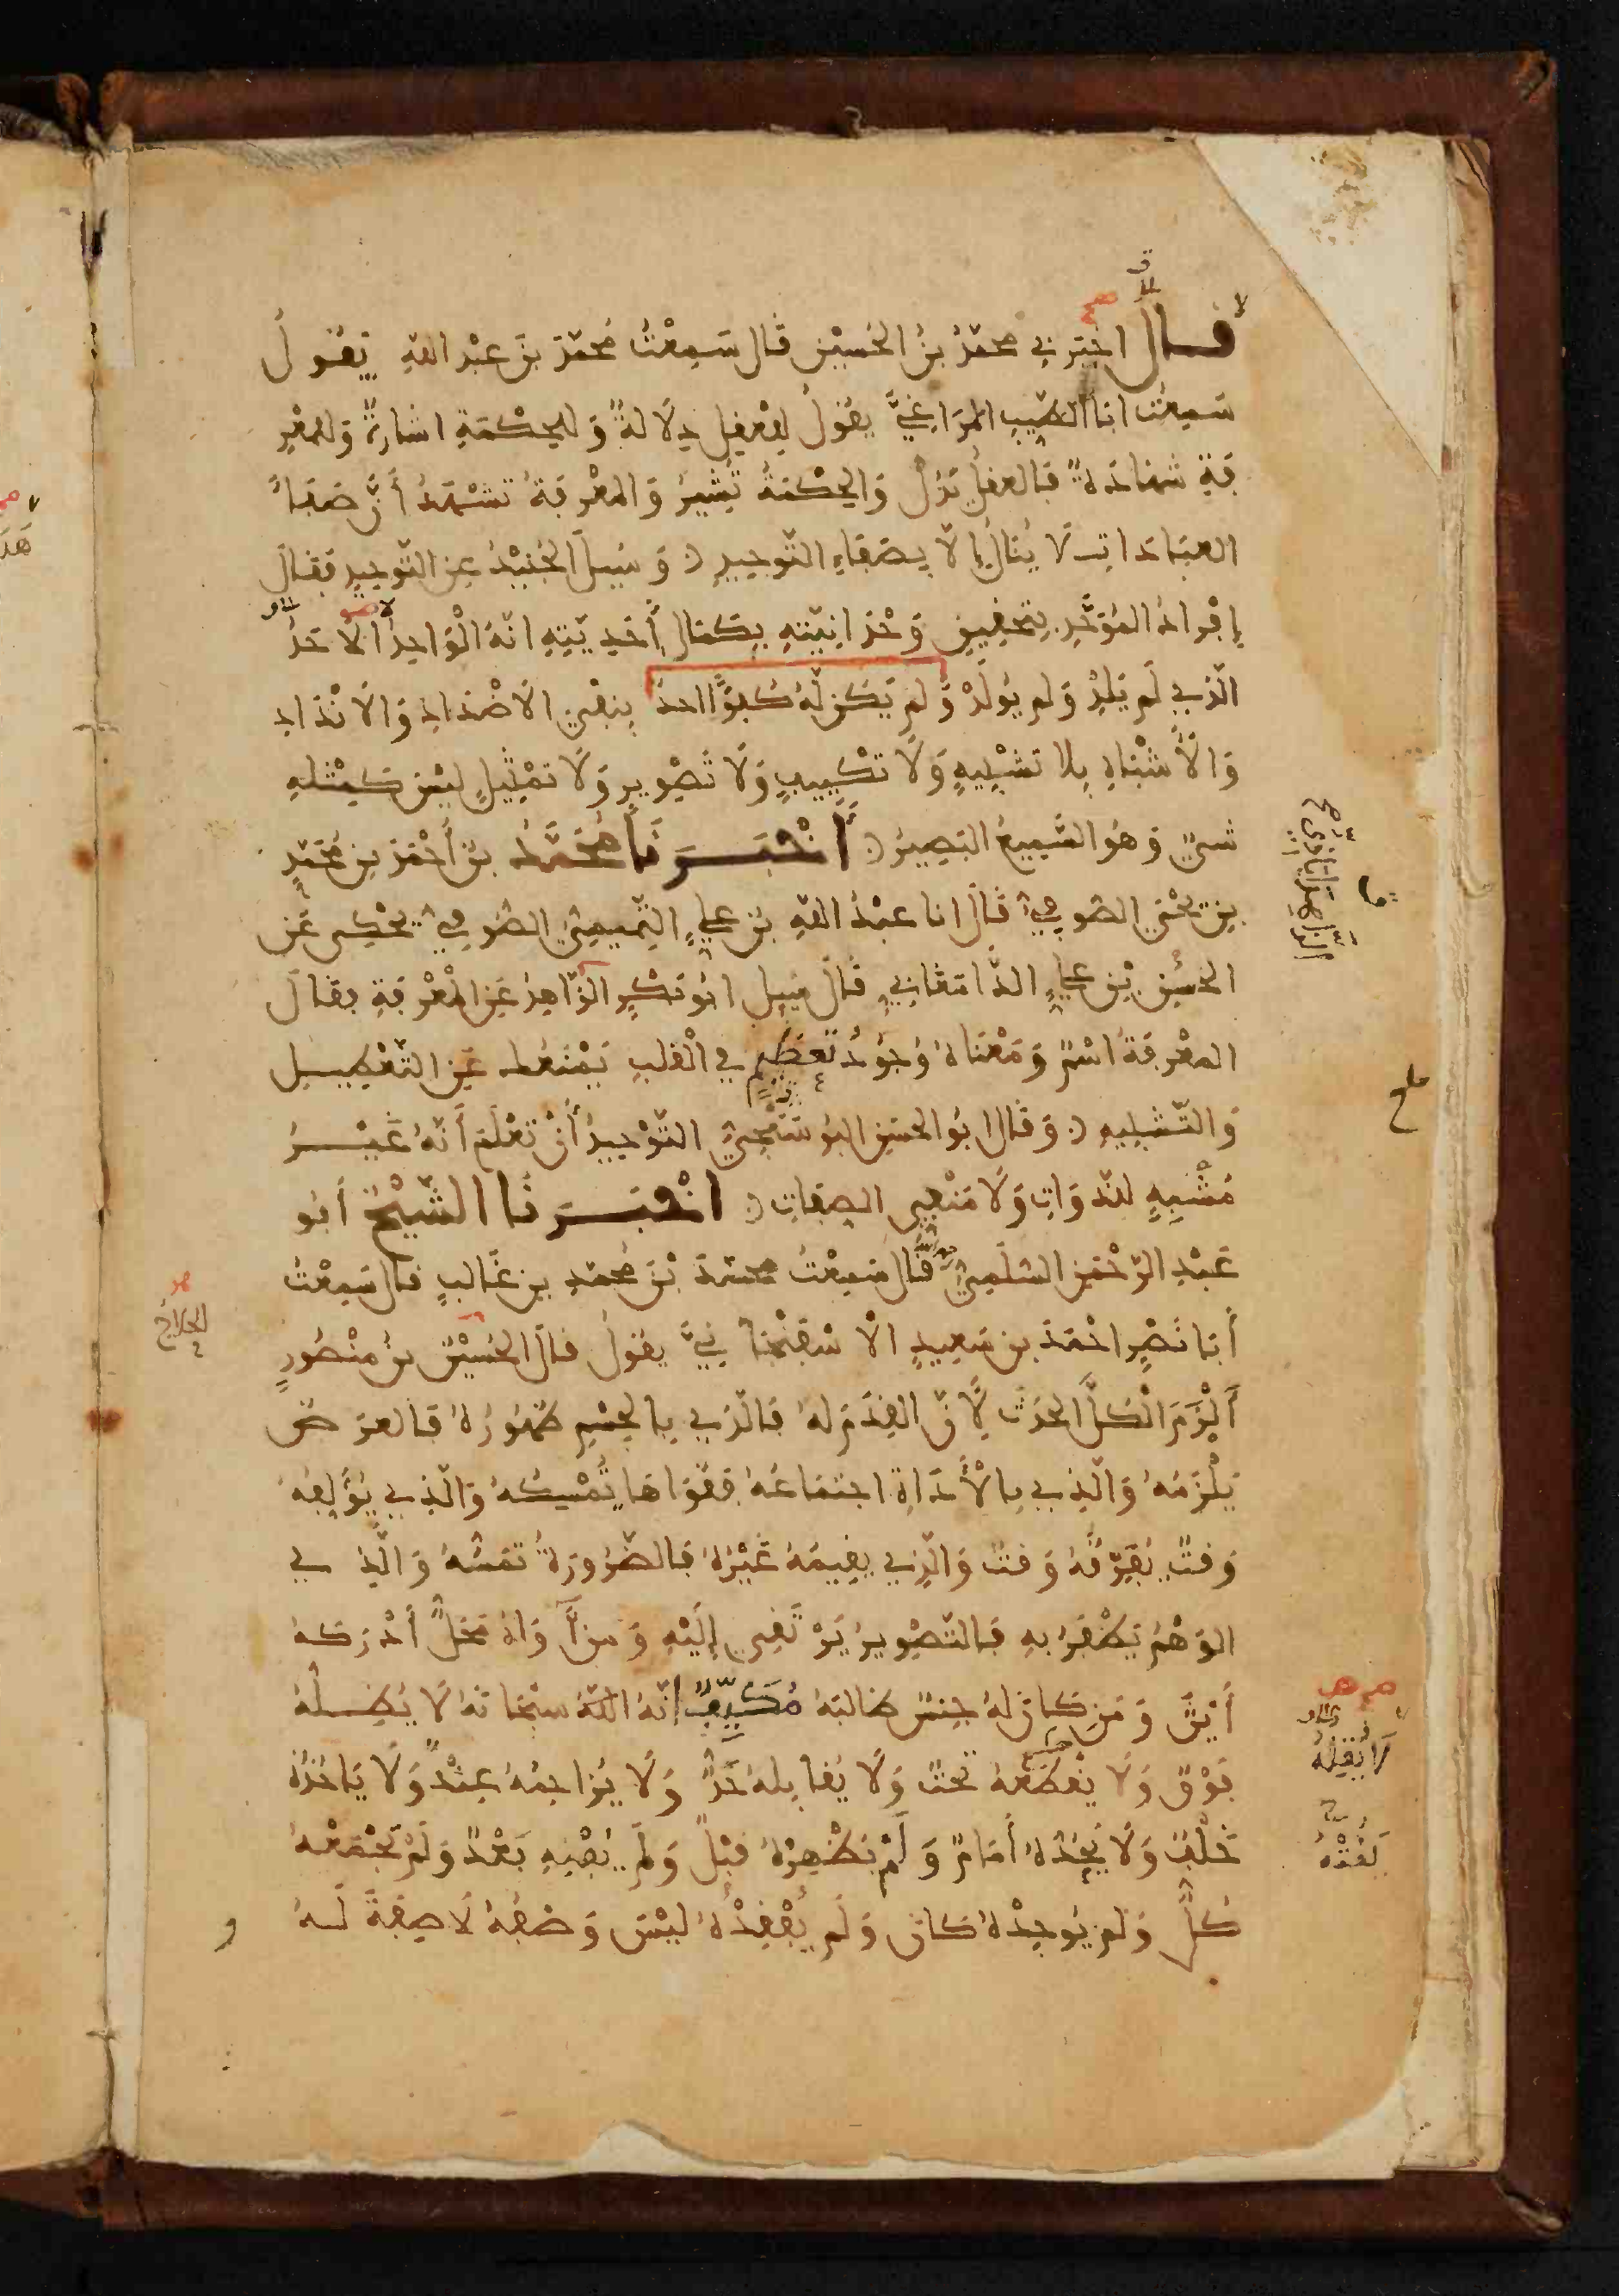 قال اخبرني محمّدُ بنُ الحُسَيْنِ قَال سَمِعْتُ مُحَمّدَ بنَ عَبْدِ اللّٰهِ يَقُولُ
سَمِعْتُ ابَا الطَّيِّبِ المَرَاغِيَّ يَقُولُ لِلْعَقْلِ دِلَالَةٌ وَلِلْحِكْمَةِ اشَارَةٌ وَلِلْمَعْرِ
فَةِ شَهَادَةٌ فَالعَقْلُ يَدُلُّ وَالحِكْمَةُ تُشِيرُ وَالمَعْرِفَةُ تَشْهَدُ أَنَّ صَفَاءَ
العِبَادَاتِ لَا يُنَالُ إِلَّا بِصَفَاءِ التَّوْحِيدِ وَسُئِلَ الجُنَيْدُ عَنِ التَّوْحِيدِ فَقَالَ
إِفْرَادُ المُوَحَّدِ بِتَحْقِيقِ وَحْدَانِيَّتِهِ بِكَمَالِ أَحَدِيَّتِهِ انَّهُ الْوَاحِدُ الاَحَدُ
الّذِي لَمْ يَلِدْ وَلم يُولَدْ وَلَم يَكُن لّهُ كُفُؤًا احدٌ بِنَفْيِ الاَضْدَادِ وَالاَنْدَادِ
وَالاَشْبَاهِ بِلَا تَشْبِيهٍ وَلَا تَكْيِيفٍ وَلَا تَصْوِيرٍ وَلَا تَمْثِيلٍ لَيْسَ كَمِثْلِهِ
شَيْءٌ وَهُوَ السَّمِيعُ البَصِيرُ أَخْبَرَنَا مُحَمَّدُ بنُ أَحْمَدَ بنِ مُحَمّدِ
بنِ يَحْيَى الصُّوفِيُّ قَالَ انا عَبْدُ اللّٰهِ بْنُ عَلِيٍّ التَّمِيمِيُّ الصُّوفِيُّ يَحْكِى عَنِ
الحُسَيْنِ بْنِ عَلِيٍّ الدَّامَغَانِيِّ قَالَ سُئِلَ ابُو بَكْرٍ الزَّاهِدُ عَنِ المَعْرِفَةِ فقَالَ
المَعْرِفَةُ اسْمٌ وَمَعْنَاهُ وُجُودُ تَعْظِيمٍ فِي الْقَلْبِ يَمْنَعُكَ عَنِ التَّعْطِيلِ
وَالتَّشْبِيهِ وَقَالَ ابُو الحَسَنِ البُوشَنْجِيُّ التَّوْحِيدُ أَنْ تَعْلَمَ أَنّهُ غَيْرُ
مُشْبِهٍ لِلذَّوَاتِ وَلَا مَنْفِى الصِّفَاتِ اخْبَرَنَا الشَّيْخُ أَبُو
عَبْدِ الرَّحْمَنِ السُّلَمِيُّ قَالَ سَمِعْتُ مُحَمَّدَ بْنَ مُحَمّدِ بنِ غَالِبٍ قَال سَمِعْتُ
أَبَا نَصْرٍ احْمَدَ بن سَعِيدٍ الْاسْفِنْجَانِيَّ يَقُولُ قَالَ الحُسَيْنُ بنُ مَنْصُورٍ
أَلْزَمَ الْكُلَّ الحَدَثَ لِأَنَّ القِدَمَ لَهُ فَالّذِي بِالجِسْمِ ظُهُورُهُ فَالعَرَضُ
يَلْزَمُهُ وَالّذِي بِالْأَدَاةِ اجتِمَاعُهُ فَقُوَاهَا تُمْسِكُهُ وَالّذِي يُؤَلِّفُهُ
وَقتٌ يُفَرِّقُهُ وَقتٌ وَالّذِي يُقِيمُهُ غَيْرُهُ فَالضَّرُورَةُ تَمَسُّهُ وَالّذِي
الوَهْمُ يَظْفَرُ بِهِ فَالتَّصْوِيرُ يَرْتَقِي إِلَيْهِ وَمَن آوَاهُ مَحَلٌّ أَدْرَكَهُ
أَيْنٌ وَمَن كَانَ لَهُ جِنسٌ طَالَبَهُ مُكَيِّفٌ إِنّهُ اللّٰهُ سُبْحَانَهُ لَا يُظِلُّهُ
فَوْقٌ وَلَا يقطعُهُ تَحْتٌ وَلَا يُقَابِلهُ حَدٌّ وَلَا يُزَاحِمُهُ عِنْدٌ وَلَا يَاخُذُهُ
خَلْفٌ وَلَا يَحُدُّهُ أَمَامٌ وَلَمْ يُظْهِرْهُ قَبْلٌ وَلَم يُفْنِهِ بَعْدٌ وَلَمْ يَجْمَعْهُ
كُلٌّ وَلَم يُوجِدْهُ كَانَ وَلَم يُفْقِدْهُ لَيْسَ وَصْفُهُ لَا صِفَةَ لَهُ
الحلاج
لَا يُقِلُّهُ